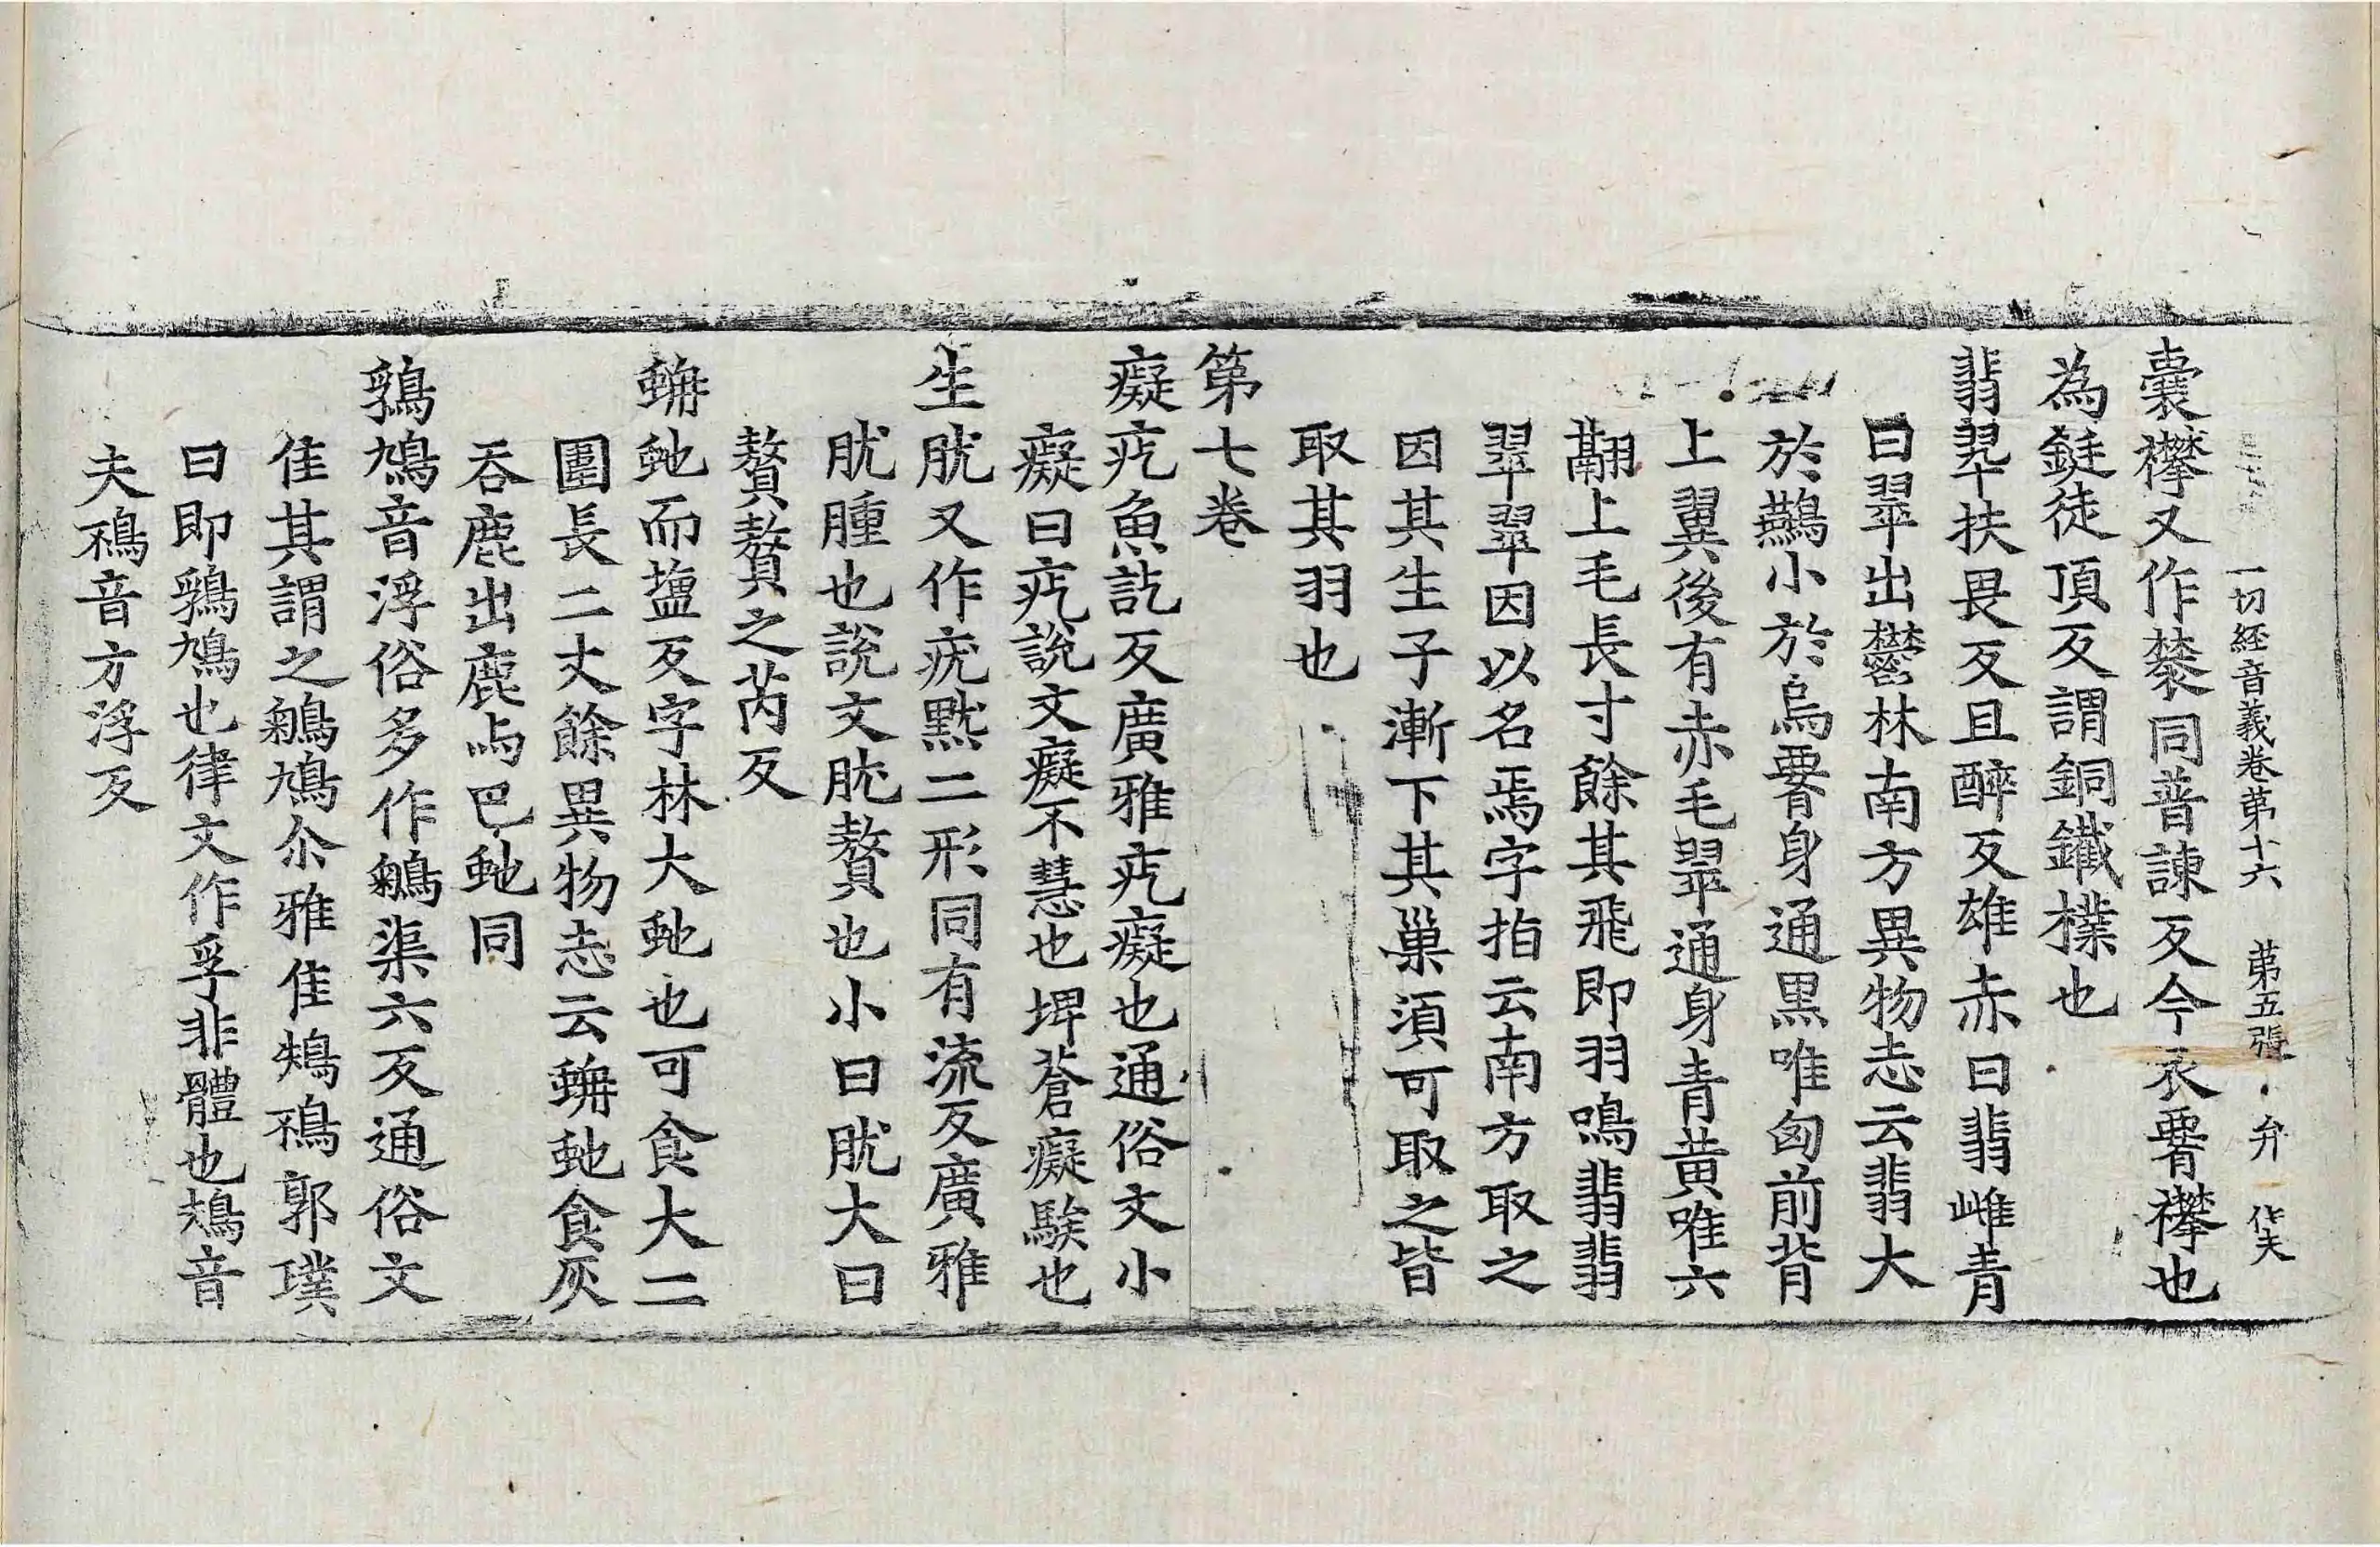 一切經音義卷第十六　第五張　弁
囊襻又作䙪同普諫反今衣要襻也
為鋌徒頂反謂銅鐵樸也
翡翠扶畏反且醉反雄赤曰翡雌青
曰翠出鬱林南方異物志云翡大
於鷰小於烏要身通黒唯匈前背
上翼後有赤毛翠通身青黄唯六
翮上毛長寸餘其飛即羽鳴翡翡
翠翠因以名焉字指云南方取之
因其生子漸下其巢湏可取之皆
取其羽也
第七卷
癡疙魚訖反廣雅疙癡也通俗文小
癡曰疙說文癡不慧也埤蒼癡騃也
生肬又作疣㸃二形同有流反廣雅
肬腫也說文肬贅也小曰肬大曰
贅贅之芮反
蚺虵而塩反字林大虵也可食大二
圍長二丈餘異物志云蚺虵食灰
吞鹿出鹿与巴虵同
鶏鳩音浮俗多作鵴渠六反通俗文
隹其謂之鵴鳩尒雅隹鳺鴀郭璞
曰即鶏鳩也律文作孚非體也鳺音
夫鴀音方浮反